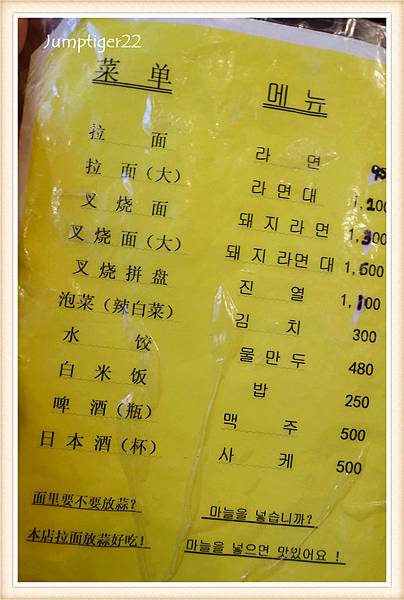 Jumptiger22
菜单 메뉴
拉面 라면
拉面(大) 라면대 1,200
叉烧面 돼지라면 1,300
叉烧面(大) 돼지라면대 1,600
叉烧拼盘 진열 1,100
泡菜(辣白菜) 김치 300
水饺 물만두 480
白米饭 밥 250
啤酒(瓶) 맥주 500
日本酒(杯) 사케 500
面里要不要放蒜? 마늘을 넣습니까?
本店拉面放蒜好吃! 마늘을 넣으면 맛있어요 !